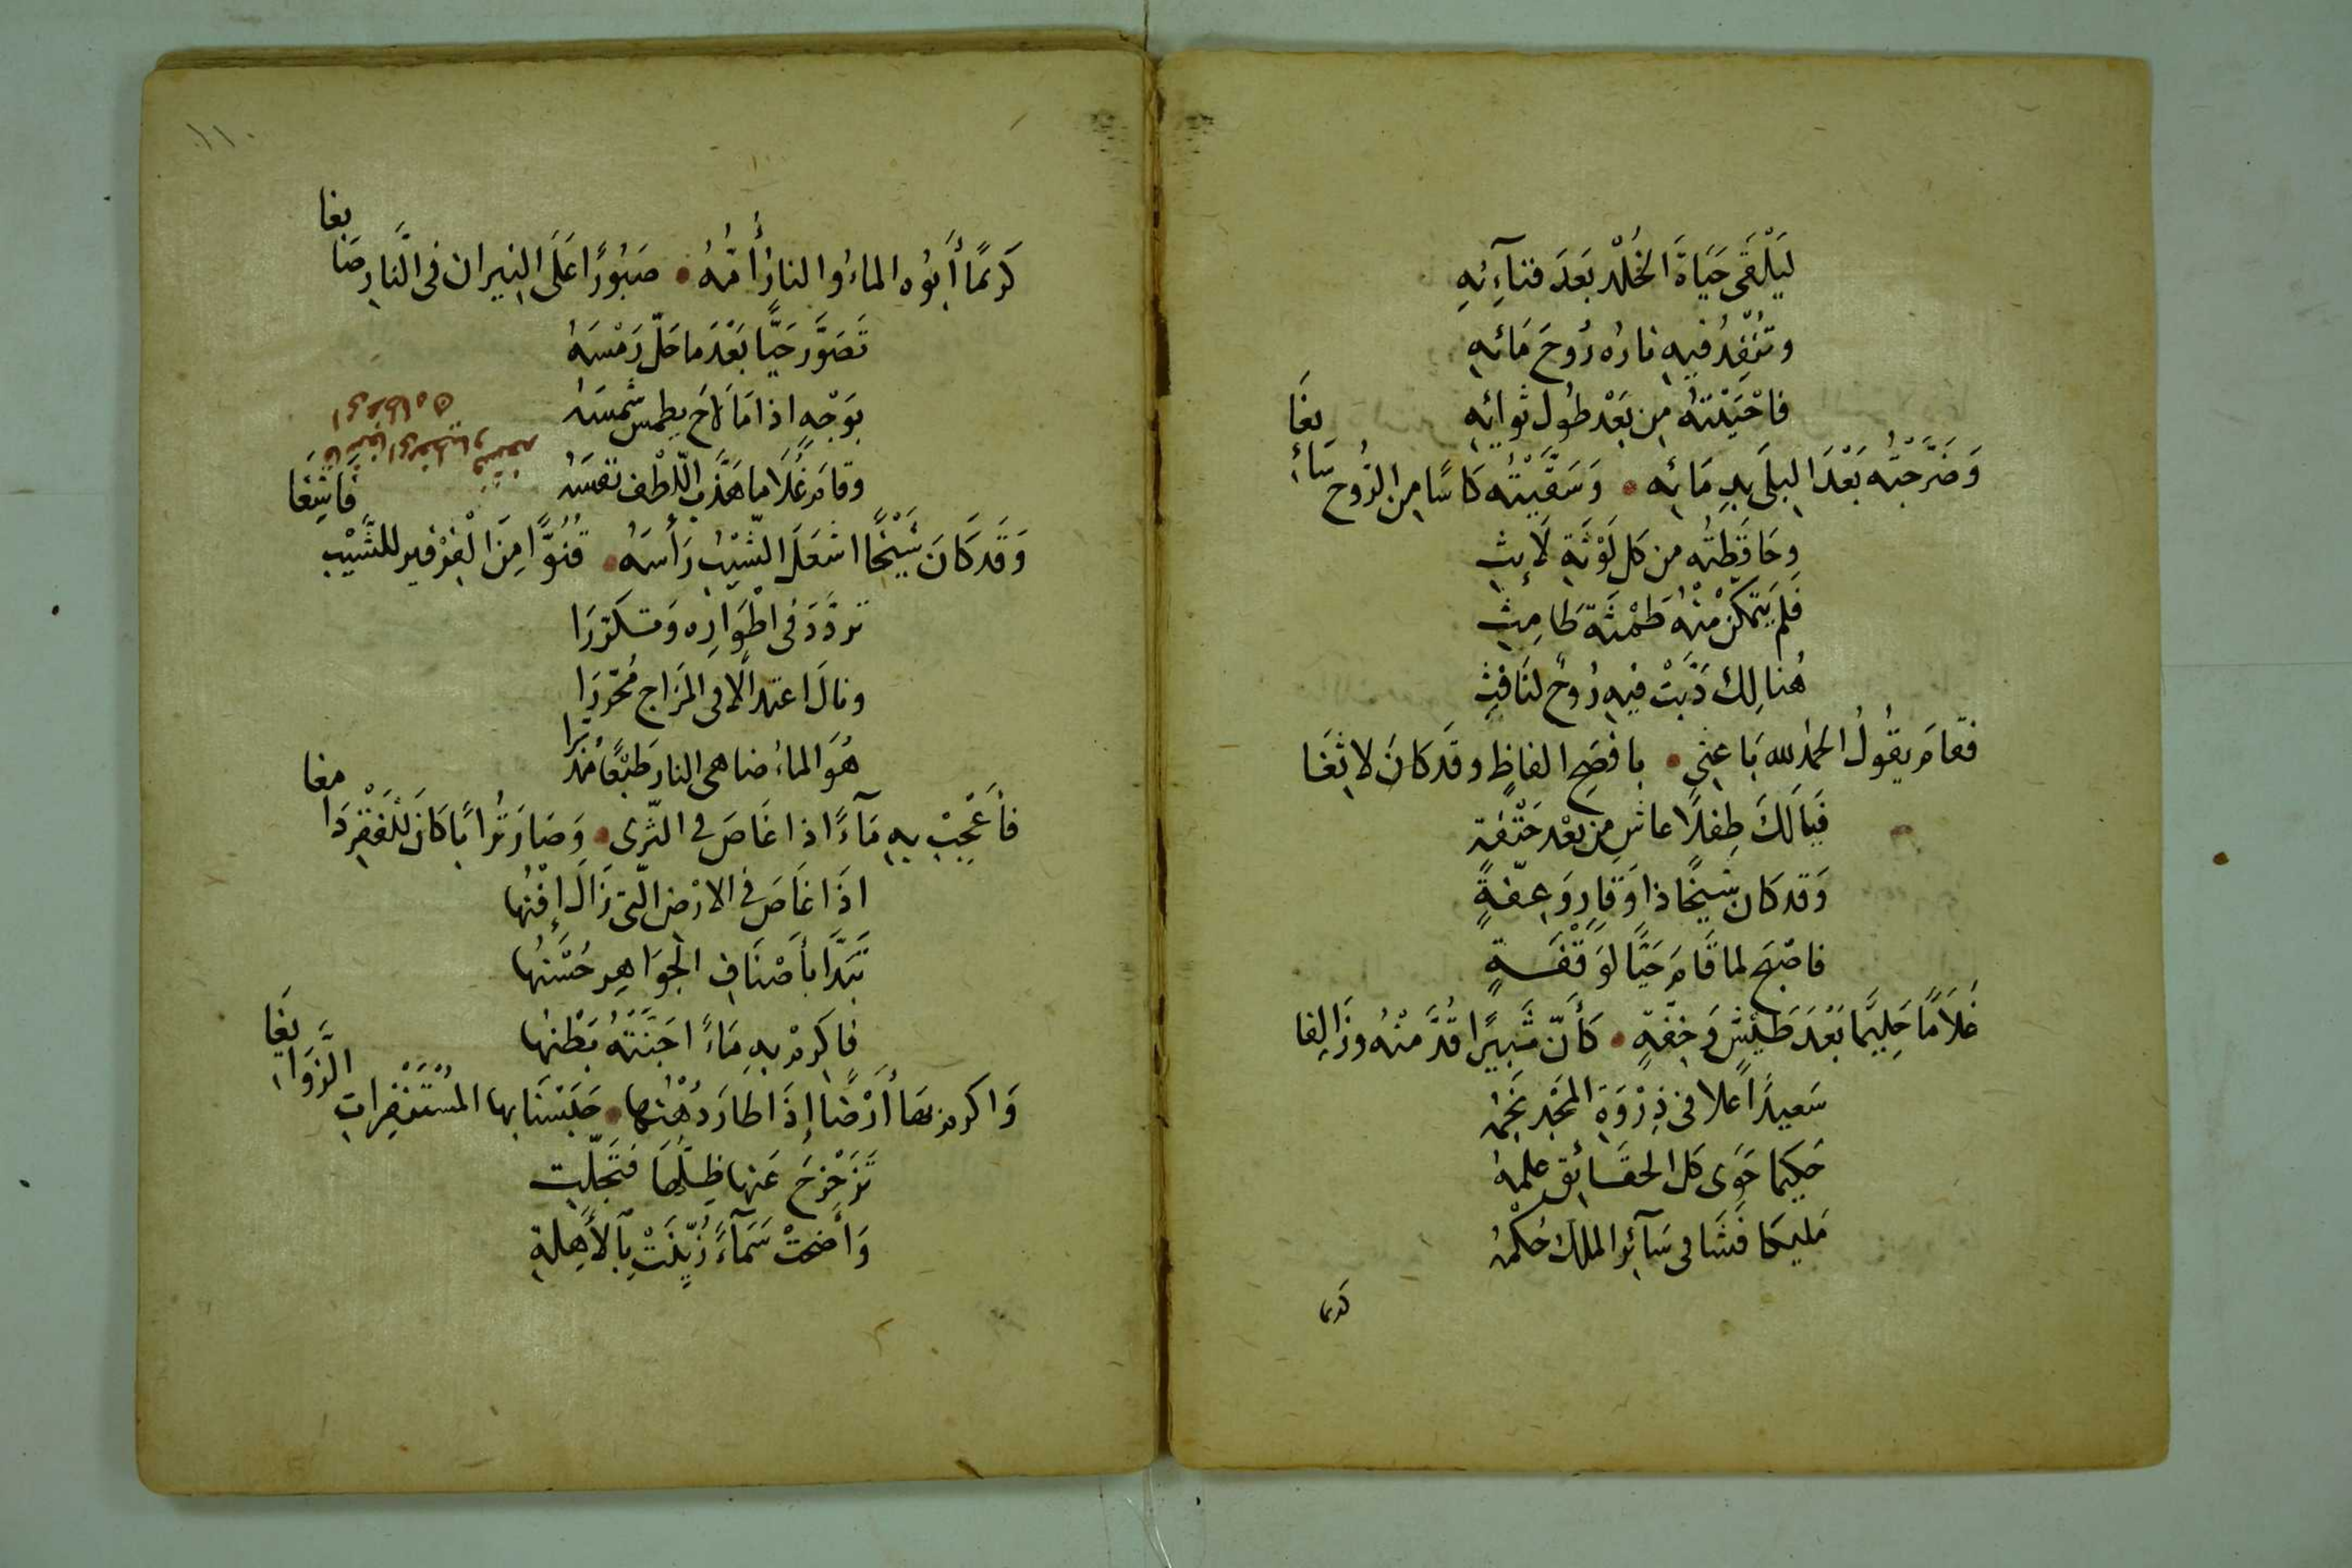 لَيَلْقَى حَيَاةَ الخُلْد بَعدَ فنآءِئهِ
وتُنْفِدُ فيه نارُه رُوحَ مَائهِ
فاحْيَيْتهُ مِن بَعْد طُول ثوائهِ
وَضَرَّجْتُه بَعْدَ البِلَى بدِمَائِه • وَسَقَّيْتُه كَاسًا مِن الرُوح سَاءِ
بغَا
وحَافَظتُه من كل لَوْثَةِ لَائِثِ
فَلَم يَتَمكَّنْ مْنهُ طَمْثَة طَامِثِ
هُنالِك دَبَّتْ فيهِ رُوحٌ لنَافثِ
فقامَ يقُولُ الحمُد لله بَاعِثى • بافصَحِ الفاظٍ وقَد كانَ لاثغَا
فَيَالَكَ طِفلًا عاش مِن بعْد حَتْفةِ
وَقد كان شيخًا ذا وَقارٍ وَعِفّةٍ
فاصْبَح لما قَامَ حَيًّا لوَقْفَةٍ
غُلَامًا حَلِيمًا بَعْدَ طَيْشٍ وَخِفّةٍ • كَأَنّ ثَبِيرًا قُدَّ مْنهُ وزَالِغا
سَعيدًا عَلا فى ذِرْوَةِ المَجْدِ نَجْمُهُ
حَكِيمًا حَوَى كل الحقَائِق علمُهُ
مَليكا فَشَا فى سَآئِر الملك حُكْمُهُ
كريما
كَريمًا أَبُوه الماءُ والنارُ أُمُّهُ • صَبُورًا عَلَى النيران فى النَّار صَا
بغا
تَصَوَّرَ حَيًّا بَعْدَ مَا حَلّ رَمْسَهُ
بوَجْهٍ اذا مَا لَاحَ يطمِسُ شمسَهُ
وقامَ غُلَاما هَذَّبَ اللّطْفُ نفسَهُ
وَقَد كَانَ شَيْخًا اشعَلَ الشَّيْبُ رَأسَهُ • قُنُوًّا مِنَ الْفِرْفيرِ للشَّيْبِ
فَاثِغَا
تردَّدَ فى اطْوَارِه وَتَكَرَّرَا
ونالَ اعتدالًا فى المزَاج مُحَرَّرَا
هُوَ الماءُ ضاهى النار طَبْعًا مُدَبَّرَا
فأَعْجِبْ بهِ مَآءً اذا غَاصَ فى الثَّرى • وَصَارَ تُرابًا كَانَ للْفَقْرِ دَا
مغا
اذَا غَاصَ فى الارْضِ الّتى زَالَ إِفْنُها
تَبَدَّا بأَصْنَافِ الجَوَاهِرِ حُسْنُها
فاكرِمْ بهِ مَاءً اجَنَّتْهُ بَطْنُها
وَاكرم بهَا أَرْضًا إِذَا طَارَ دُهْنُها • حَبَسْنَا بها المُسْتَنْفِرَاتِ الزَّوَا
بغَا
تَزَحْزَحَ عَنها ظِلُّهَا فَتَجَلّتِ
وَأَضحَتْ سَمَآءً زُيِّنَتْ بِآلأَهِلةِ